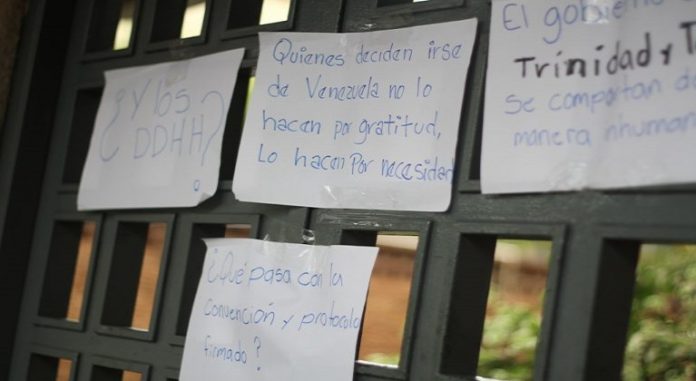 ¿Y los
DDHH?
Quienes deciden irse
de Venezuela no lo
hacen por gratitud,
Lo hacen Por necesidad
El gobierno
TRINIDAD Y T
Se comportan d
manera nhuman
¿Qué pasa con la
Convención y protocolo
firmado?